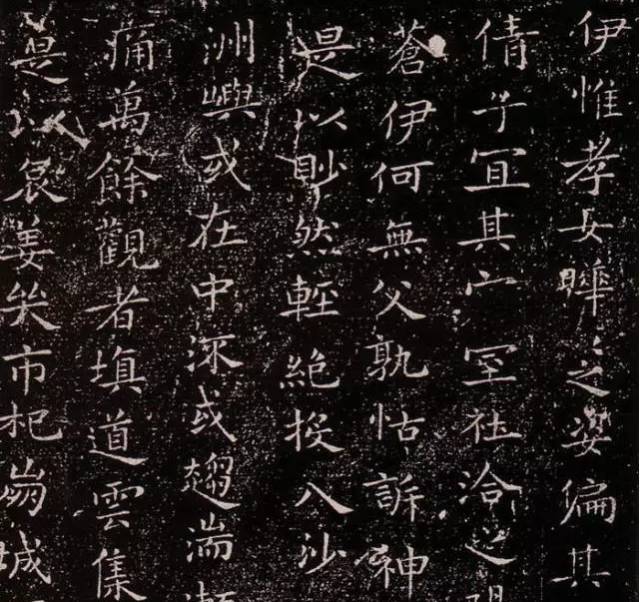 伊惟孝女曄之姿偏其
倩子宜其室在洽之陽
蒼伊何無父孰怙訴神
是以眇然輕絕投入沙
洲嶼或在中深或趨湍瀨
痛萬餘觀者填道雲集
是以哀姜哭市杞崩城